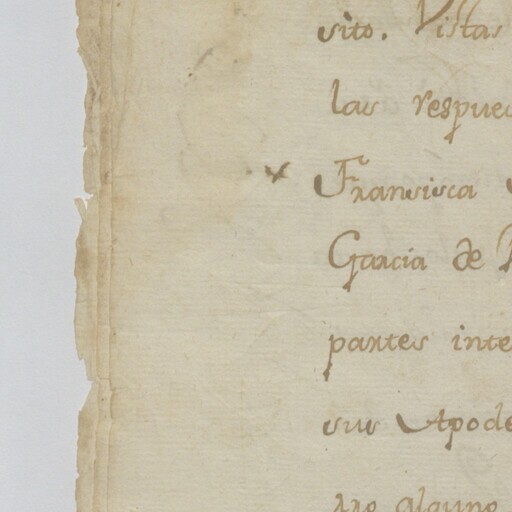 sito. Vistas
las respues
Fransisca
Garcia de
partes inte
sus Apode
alguno